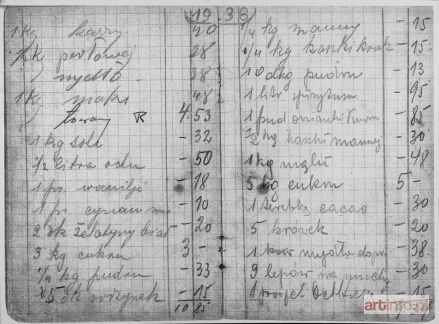 19 38
1 kg kaszy - 20
1/2 kg perłowej 28
mydło 38
1 kg mąki 48
Towary R 4.53
1 kg soli - 32
1/2 litra octu - 50
1 ps. wanilji - 18
1 ps. - 10
2 dk żelatyny biał - 20
3 kg cukru 3 -
1/4 kg pudru - 33
5 dk rodzynek - 15
10 25
1/4 kg manny - 15
1/4 kg kaszki krak - 15
10 dkg pudru - 13
1 litr spirytusu - 95
1 pud - 85
1/2 kg kaszki mannej - 30
1 kg mąki - 48
5 kg cukru 5 -
1 torebka cacao - 30
5 krówek - 20
1 kaw mydło - 38
9 lepów na muchy - 30
1 - 15
artinfo.pl